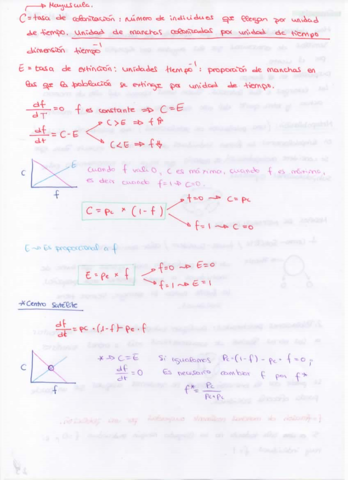 → Mayúscula.
C = tasa de colonización: número de individuos que llegan por unidad
de tiempo. Unidad de manchas colonizadas por unidad de tiempo
dimensión: tiempo⁻¹
E = tasa de extinción: unidades tiempo⁻¹; proporción de manchas en
las que la población se extingue por unidad de tiempo.
df/dT = 0 f es constante ⇒ C = E
df/dt = C - E
C > E ⇒ f ↑
C < E ⇒ f ↓
C E
f
cuando f vale 0, C es máxima, cuando f es máxima,
es decir cuando f = 1 ⇒ C = 0.
C = pc * (1 - f)
f = 0 → C = pc
f = 1 → C = 0
E → Es proporcional a f
E = pe * f
f = 0 → E = 0
f = 1 → E = 1
* Centro Satélite
df/dt = pc · (1-f) - pe · f
C
f
* ⇒ C = E
df/dt = 0
Si igualamos Pc·(1-f) - pe · f = 0;
Es necesario cambiar f por f*
f* = Pc / Pe + Pc